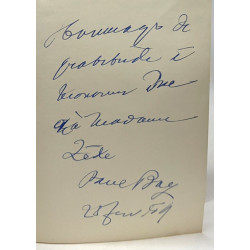 Hommage de
gratitude à
Monsieur
et à Madame
Zède
Paul Bay